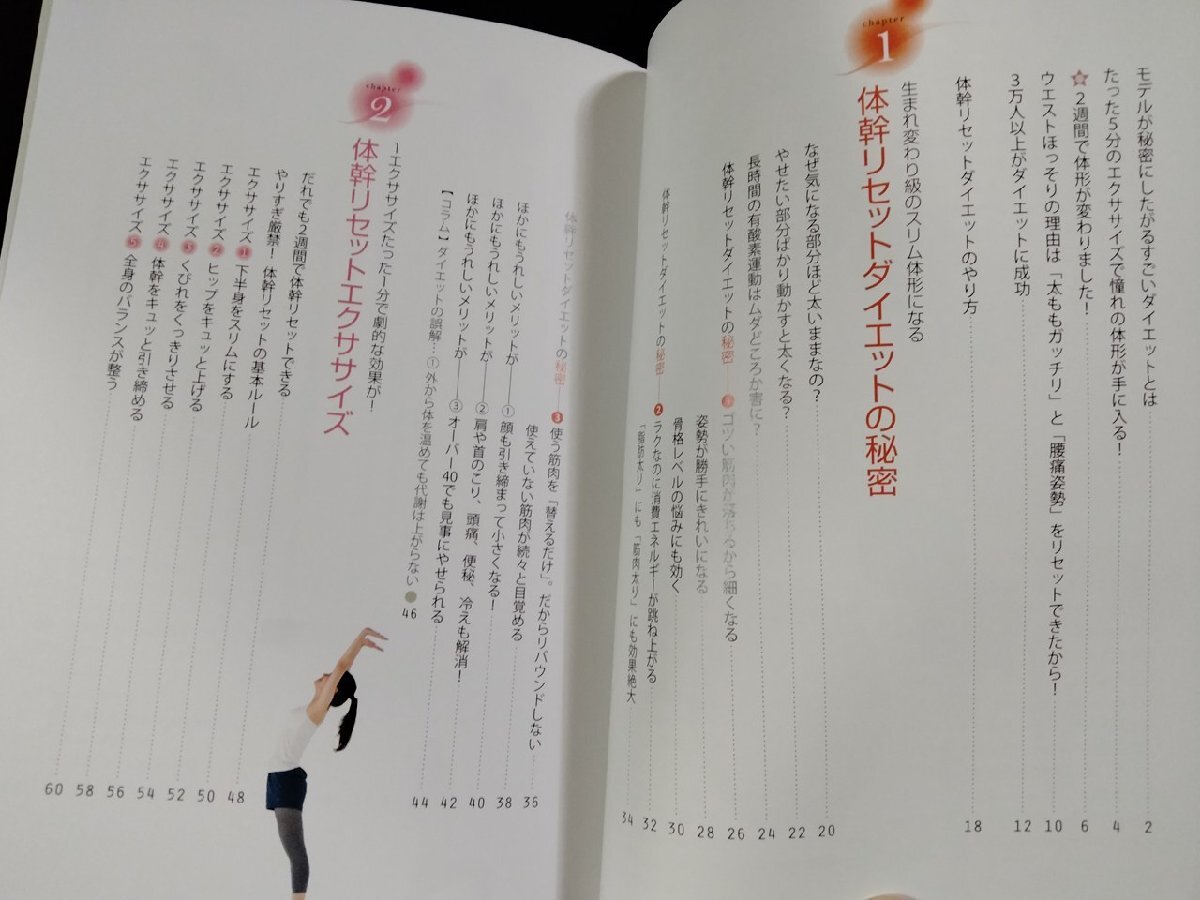 モデルが秘密にしたがるすごいダイエットとは 2
たった5分のエクササイズで憧れの体形が手に入る! 4
☆2週間で体形が変わりました! 6
ウエストほっそりの理由は「太ももガッチリ」と「腰痛姿勢」をリセットできたから! 10
3万人以上がダイエットに成功 12
体幹リセットダイエットのやり方 18
chapter
1
体幹リセットダイエットの秘密
生まれ変わり級のスリム体形になる
なぜ気になる部分ほど太いままなの? 20
やせたい部分ばかり動かすと太くなる? 22
長時間の有酸素運動はムダどころか害に? 24
体幹リセットダイエットの秘密──① ゴツい筋肉が落ちるから細くなる 26
姿勢が勝手にきれいになる 28
骨格レベルの悩みにも効く 30
体幹リセットダイエットの秘密──② ラクなのに消費エネルギーが跳ね上がる 32
「脂肪太り」にも「筋肉太り」にも効果絶大 34
体幹リセットダイエットの秘密──③ 使う筋肉を「替えるだけ」。だからリバウンドしない 35
使えていない筋肉が続々と目覚める 38
ほかにもうれしいメリットが──① 顔も引き締まって小さくなる! 40
ほかにもうれしいメリットが──② 肩や首のこり、頭痛、便秘、冷えも解消! 42
ほかにもうれしいメリットが──③ オーバー40でも見事にやせられる 44
【コラム】ダイエットの誤解…① 外から体を温めても代謝は上がらない 46
chapter
2
体幹リセットエクササイズ
1エクササイズたった1分で劇的な効果が!
だれでも2週間で体幹リセットできる 48
やりすぎ厳禁! 体幹リセットの基本ルール 50
エクササイズ① 下半身をスリムにする 52
エクササイズ② ヒップをキュッと上げる 54
エクササイズ③ くびれをくっきりさせる 56
エクササイズ④ 体幹をキュッと引き締める 58
エクササイズ⑤ 全身のバランスが整う 60